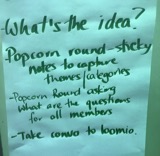 What's the idea?
Popcorn round-sticky
notes to capture
themes/categories
-Popcorn Round asking
what are the questions
for all members
-Take convo to loomio.